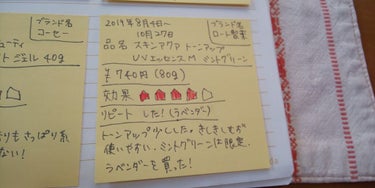 ブランド名
コーセー
ューティ
ト ジェル 40g
りもさっぱり系
ない!
2019年8月4日〜
10月27日
ブランド名
ロート製薬
品名 スキンアクア トーンアップ
UVエッセンスM ミントグリーン
¥740円(80g)
効果
リピート した!(ラベンダー)
トーンアップ少しした。きしきしせず
使いやすい。ミントグリーンは限定。
ラベンダーを買った!